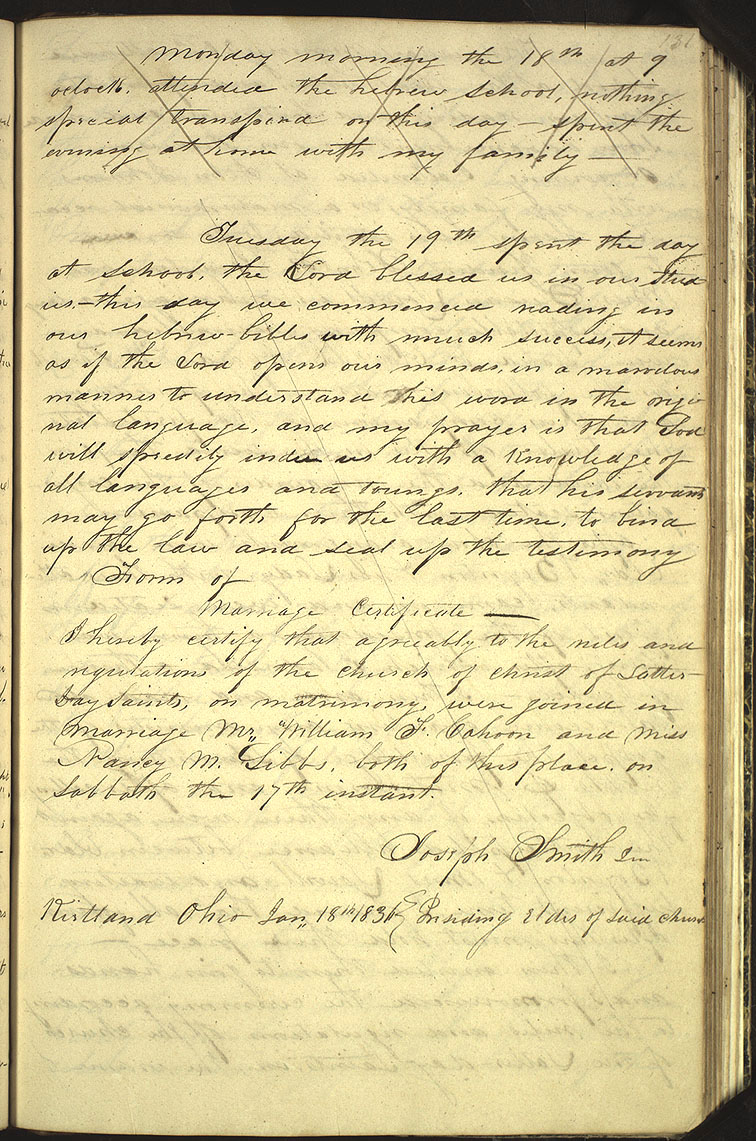 131
Monday morning the 18th at 9
oclock, attended the hebrew school, nothing
special transpired on this day — spent the
evening at home with my family —
Tuesday the 19th spent the day
at school, the Lord blessed us in our stud
ies, — this day we commenced reading in
our hebrew-bibles with much success, it seems
as if the Lord opens our minds, in a marvelous
manner to understand his word in the origi
nal language, and my prayer is that God
will speedily indue us with a knowledge of
all languages and toungs, that his servants
may go forth for the last time, to bind
up the law and seal up the testimony
Form of
Marriage Certificate —
I hereby certify that agreeably to the rules and
regulations of the church of christ of Latter-
Day Saints, on matrimony, were joined in
marriage Mr,, William F. Cahoon and Miss
Nancy M. Gibbs, both of this place, on
Sabbath the 17th instant.
Joseph Smith Jun
Kirtland Ohio Jan,, 18th 1836 { Presiding Elder of said church